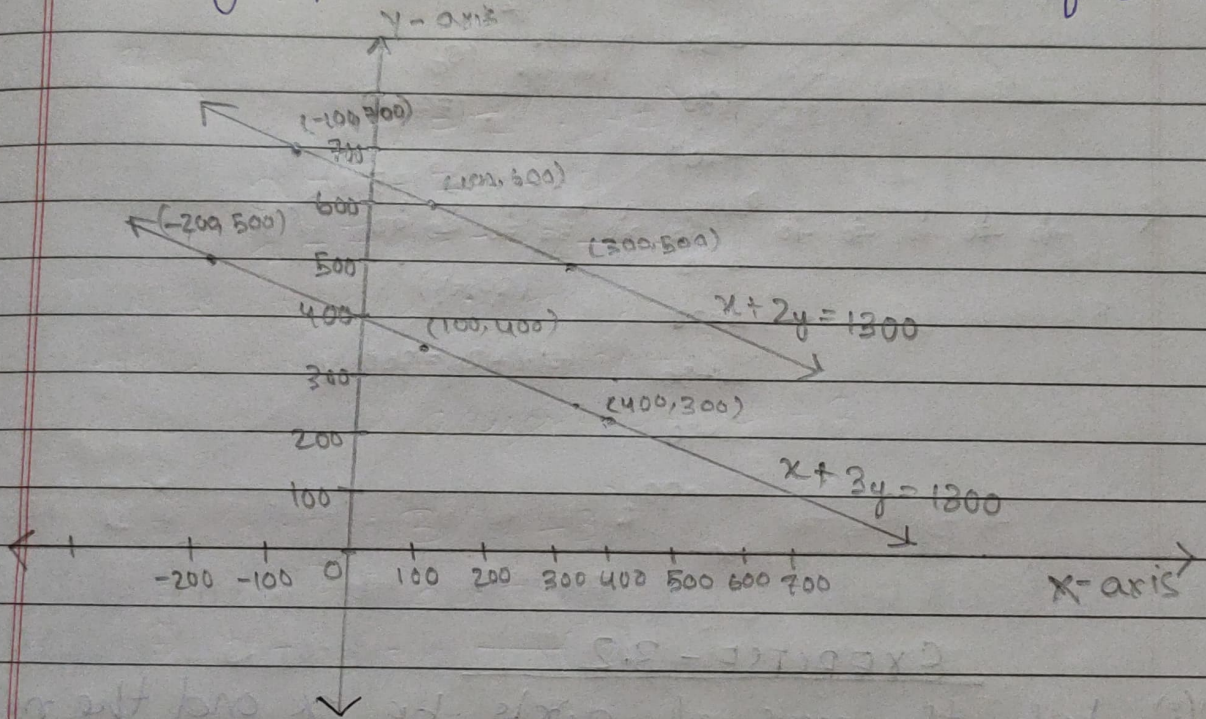 y-axis
(-100,700)
700
(100,600)
600
(-200,500)
(300,500)
500
x+2y=1300
400
(100,400)
300
(400,300)
200
x+3y=1300
100
-200 -100 0 100 200 300 400 500 600 700
x-axis